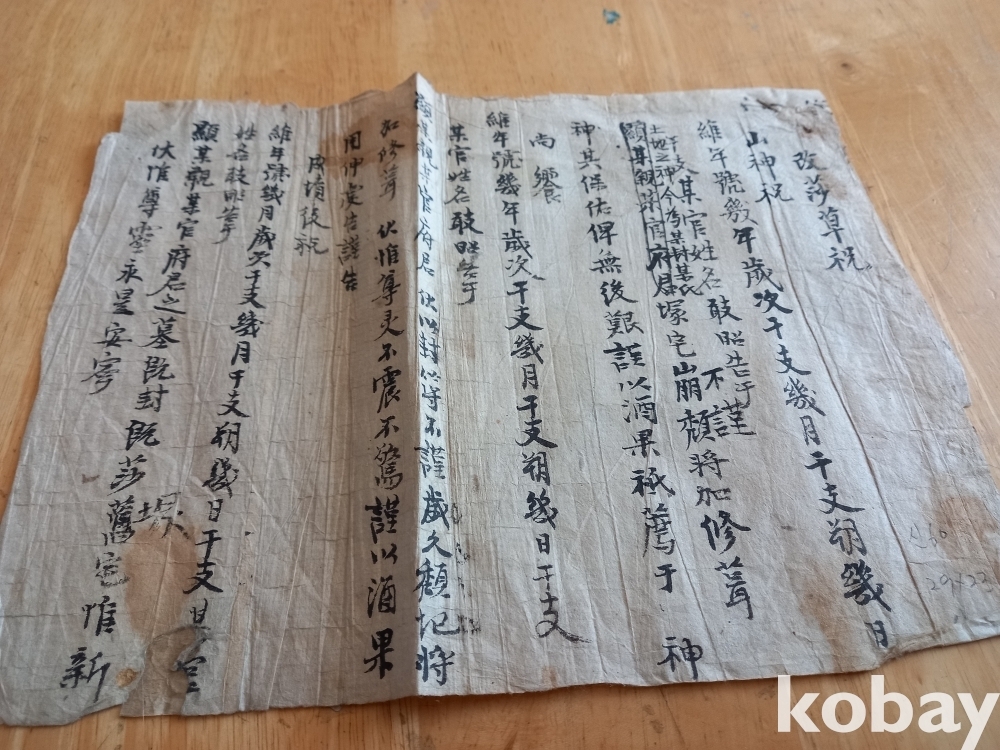 改莎草祝
山神祝
維年號幾年歲次干支幾月干支朔幾日
干支某官姓名敢昭告于
土地之神今爲某
顯某親某官府君塚宅崩頹將加修葺
不謹
神其保佑俾無後艱謹以酒果祗薦于 神
尚饗
維年號幾年歲次干支幾月干支朔幾日干支
某官姓名敢昭告于
顯某親某官府君伏以封築不謹歲久頹圮將
加修葺 伏惟尊灵不震不驚謹以酒果
用伸虔告謹告
成墳後祝
維年號幾月歲次干支幾月干支朔幾日干支某官
姓名敢昭告于
顯某親某官府君之墓既封既莎舊宅惟新
伏惟尊靈永呈安寧
kobay